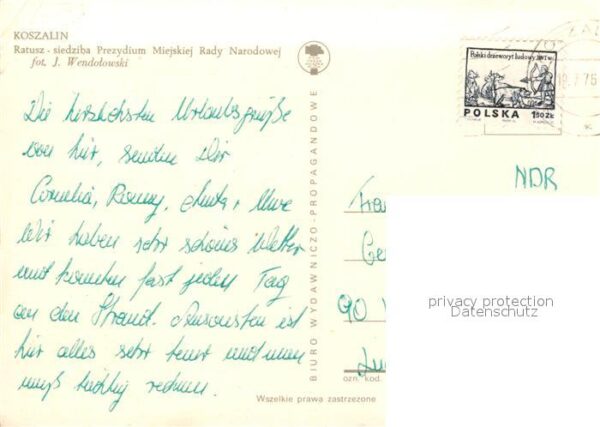 KOSZALIN
Ratusz - siedziba Prezydium Miejskiej Rady Narodowej
fot. J. Wendołowski
Die herzlichsten Urlaubsgrüße
von hier, senden Dir
Cornelia, Romy, Uwe
Wir haben sehr schönes Wetter
und konnten fast jeden Tag
an den Strand. Ansonsten ist
hier alles sehr teuer und man
muß tüchtig rechnen.
BIURO WYDAWNICZO-PROPAGANDOWE
Wszelkie prawa zastrzeżone
Polski drzeworyt ludowy XVI w.
POLSKA 1.50 ZŁ
75
NDR
90
ozn. kod.
privacy protection
Datenschutz